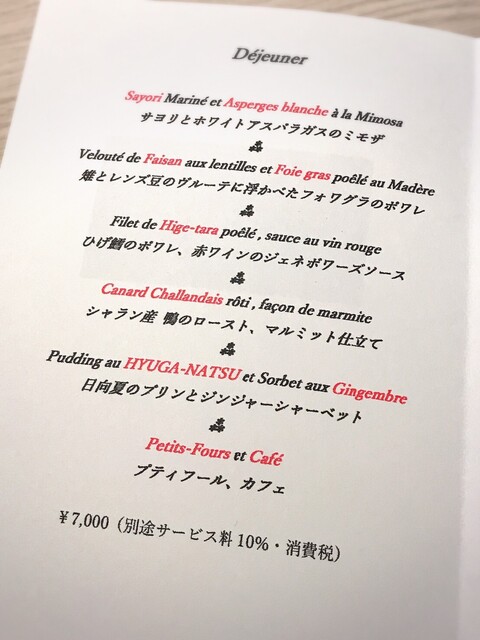 Déjeuner
Sayori Mariné et Asperges blanche à la Mimosa
サヨリとホワイトアスパラガスのミモザ
Velouté de Faisan aux lentilles et Foie gras poêlé au Madère
雉とレンズ豆のヴルーテに浮かべたフォワグラのポワレ
Filet de Hige-tara poêlé , sauce au vin rouge
ひげ鱈のポワレ、赤ワインのジェネボワーズソース
Canard Challandais rôti , façon de marmite
シャラン産 鴨のロースト、マルミット仕立て
Pudding au HYUGA-NATSU et Sorbet aux Gingembre
日向夏のプリンとジンジャーシャーベット
Petits-Fours et Café
プティフール、カフェ
￥7,000（別途サービス料 10%・消費税）